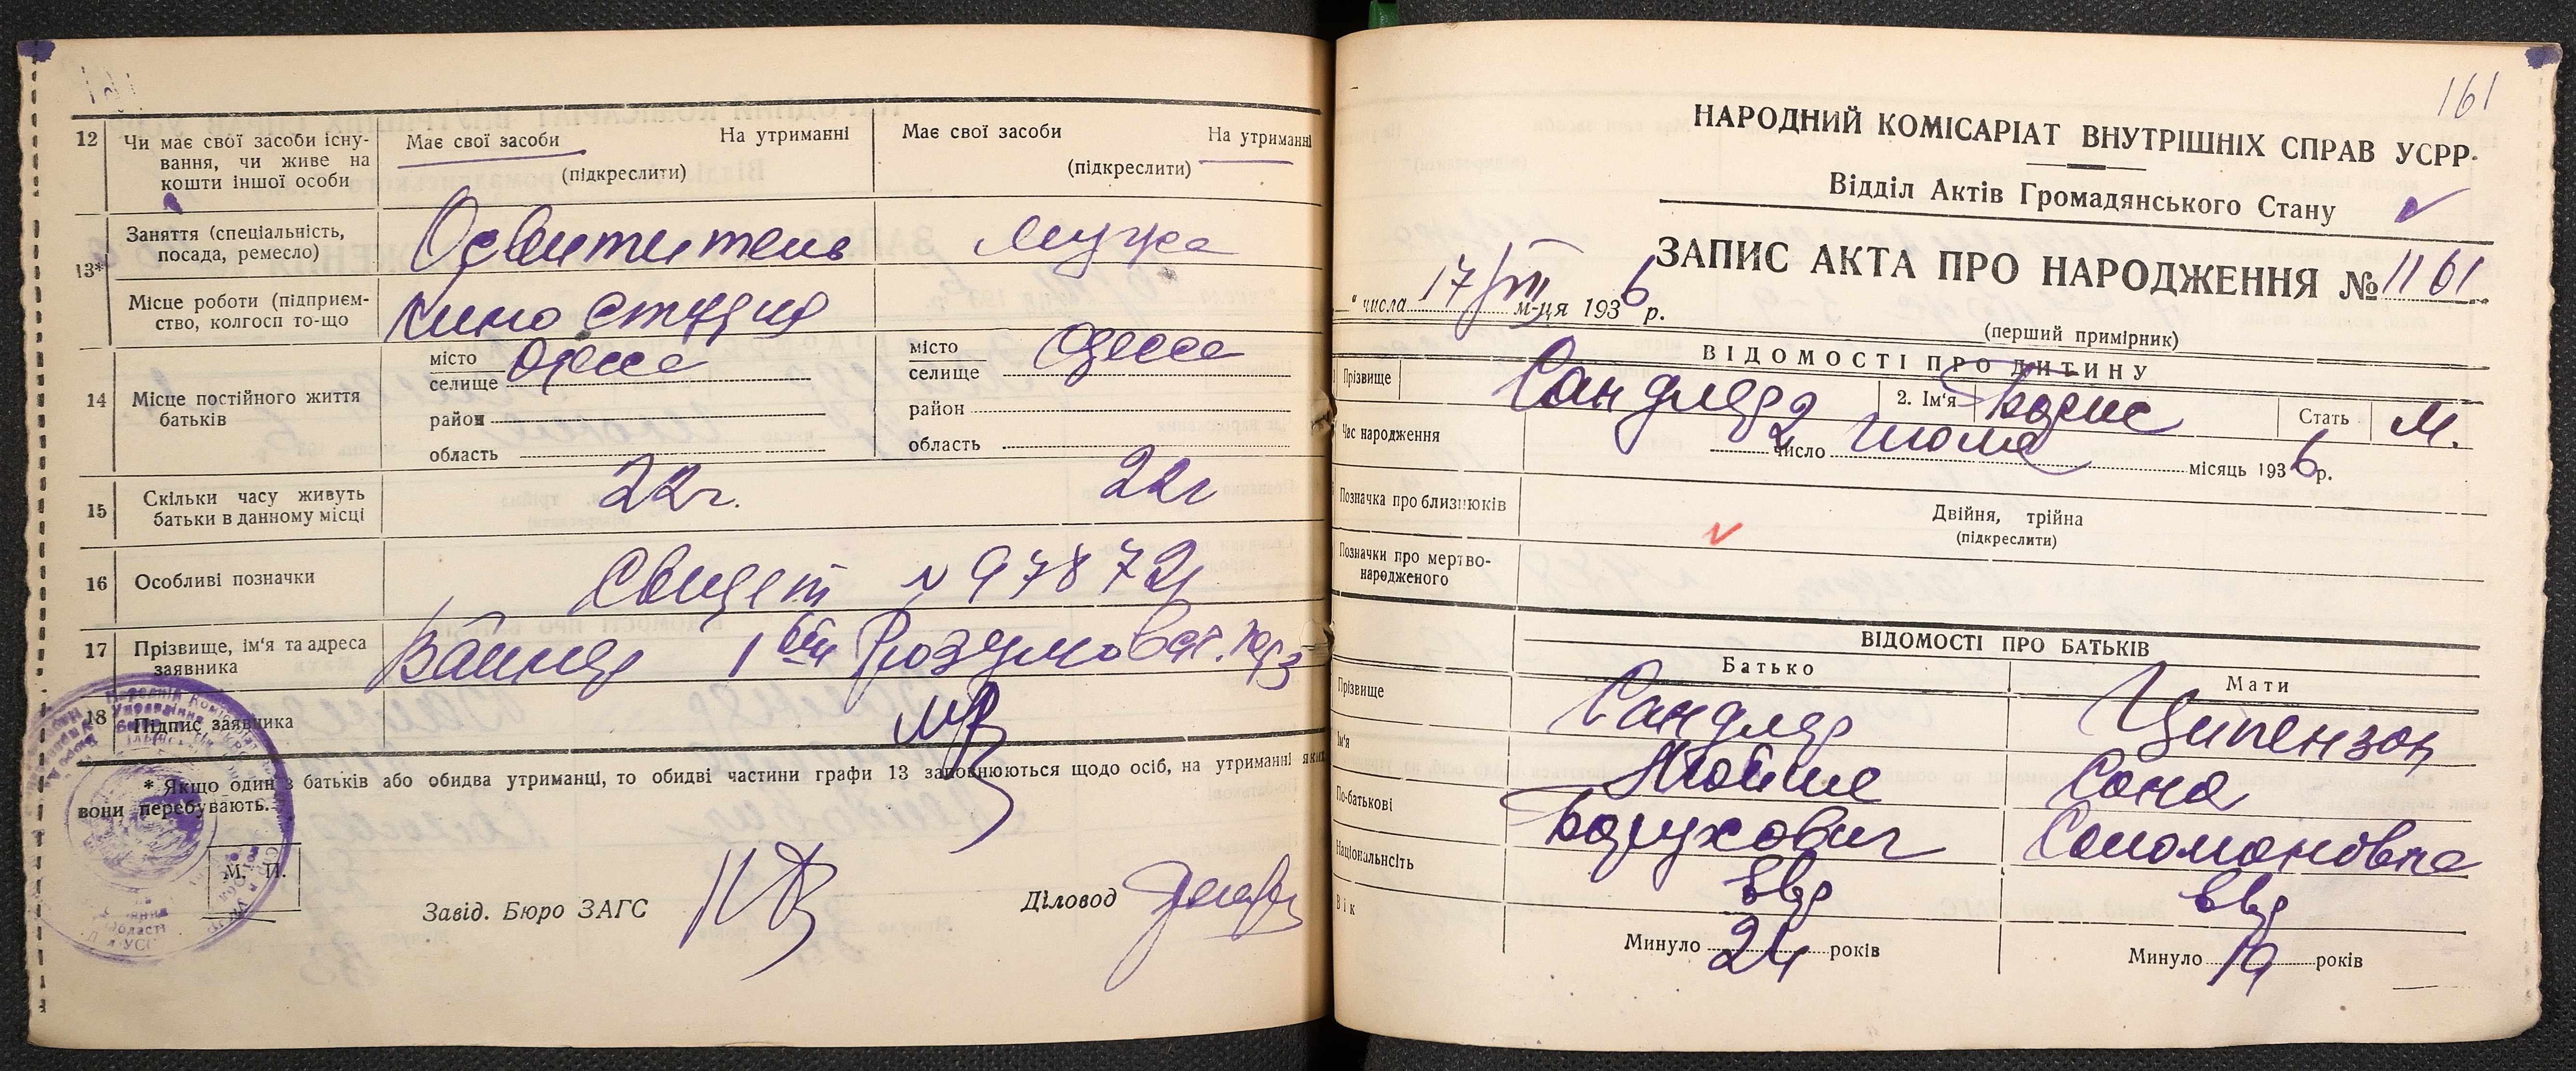 12 Чи має свої засоби існу-
вання, чи живе на
кошти іншої особи
Має свої засоби На утриманні
(підкреслити)
Має свої засоби На утриманні
(підкреслити)
13*
Заняття (спеціальність,
посада, ремесло)
Осветитель
мужа
Місце роботи (підприєм-
ство, колгосп то-що
кино студия
14 Місце постійного життя
батьків
місто
селище Одесса
район
область
місто
селище Одесса
район
область
15 Скільки часу живуть
батьки в данному місці
22г.
22г
16 Особливі позначки
Свидет №97872
17 Прізвище, ім'я та адреса
заявника
18 Підпис заявника
* Якщо один з батьків або обидва утриманці, то обидві частини графи 13 заповнюються щодо осіб, на утриманні яких
вони перебувають.
М. П.
Завід. Бюро ЗАГС
Діловод
161
НАРОДНИЙ КОМІСАРІАТ ВНУТРІШНІХ СПРАВ УСРР.
Відділ Актів Громадянського Стану
ЗАПИС АКТА ПРО НАРОДЖЕННЯ № 1161
" числа 17/VII м-ця 1936 р.
(перший примірник)
ВІДОМОСТІ ПРО ДИТИНУ
1 Прізвище Сандлер 2. Ім'я Борис Стать М.
Час народження 2 число июля місяць 1936р.
Позначка про близнюків
Двійня, трійна
(підкреслити)
Позначки про мертво-
народженого
ВІДОМОСТІ ПРО БАТЬКІВ
Батько Мати
Прізвище Сандлер Ципензон
Ім'я Мойше Соня
По-батькові Борухович Соломоновна
Національність евр евр
Вік Минуло 24 років Минуло 19 років